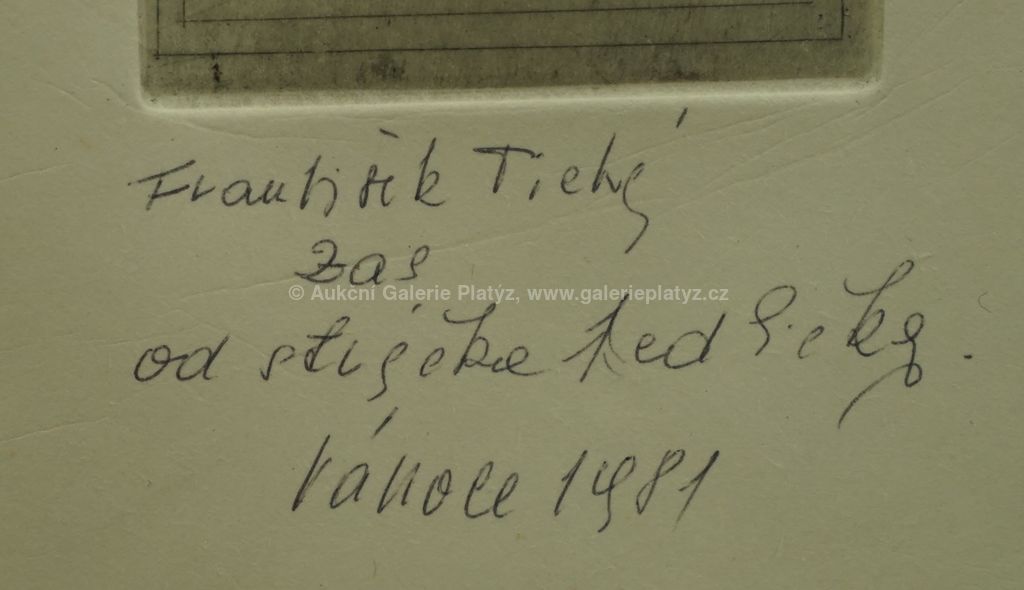 František Tichý
zas
© Aukční Galerie Platýz, www.galerieplatyz.cz
od strýčka
Vánoce 1981